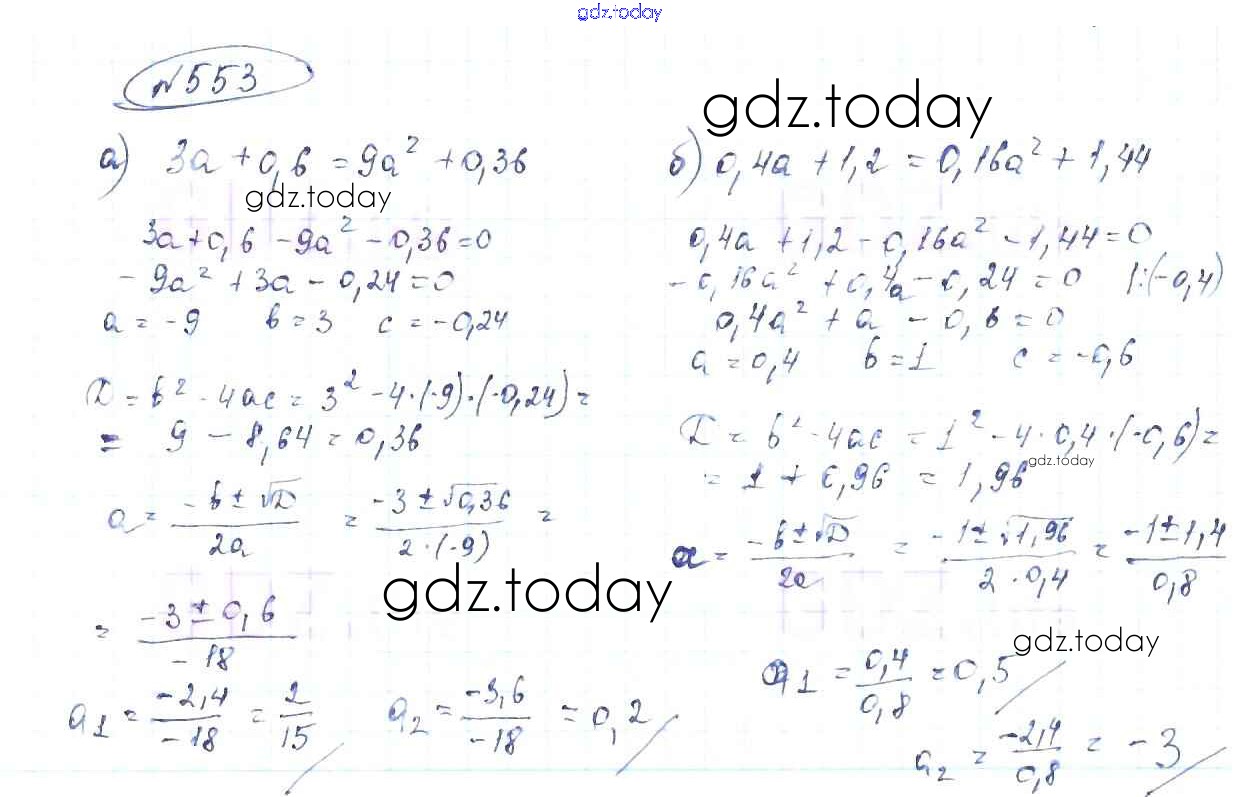 gdz.today
№553
gdz.today
а) 3a + 0,6 = 9a² + 0,36
gdz.today
3a + 0,6 - 9a² - 0,36 = 0
- 9a² + 3a - 0,24 = 0
a = -9 b = 3 c = -0,24
D = b² - 4ac = 3² - 4·(-9)·(-0,24) =
= 9 - 8,64 = 0,36
a = (-b ± √D)/2a = (-3 ± √0,36)/(2·(-9)) =
gdz.today
= (-3 ± 0,6)/(-18)
a₁ = (-2,4)/(-18) = 2/15 a₂ = (-3,6)/(-18) = 0,2
б) 0,4a + 1,2 = 0,16a² + 1,44
0,4a + 1,2 - 0,16a² - 1,44 = 0
- 0,16a² + 0,4a - 0,24 = 0 |:(-0,4)
0,4a² + a - 0,6 = 0
a = 0,4 b = 1 c = -0,6
D = b² - 4ac = 1² - 4·0,4·(-0,6) =
gdz.today
= 1 + 0,96 = 1,96
a = (-b ± √D)/2a = (-1 ± √1,96)/(2·0,4) = (-1 ± 1,4)/0,8
gdz.today
a₁ = 0,4/0,8 = 0,5
a₂ = -2,4/0,8 = -3